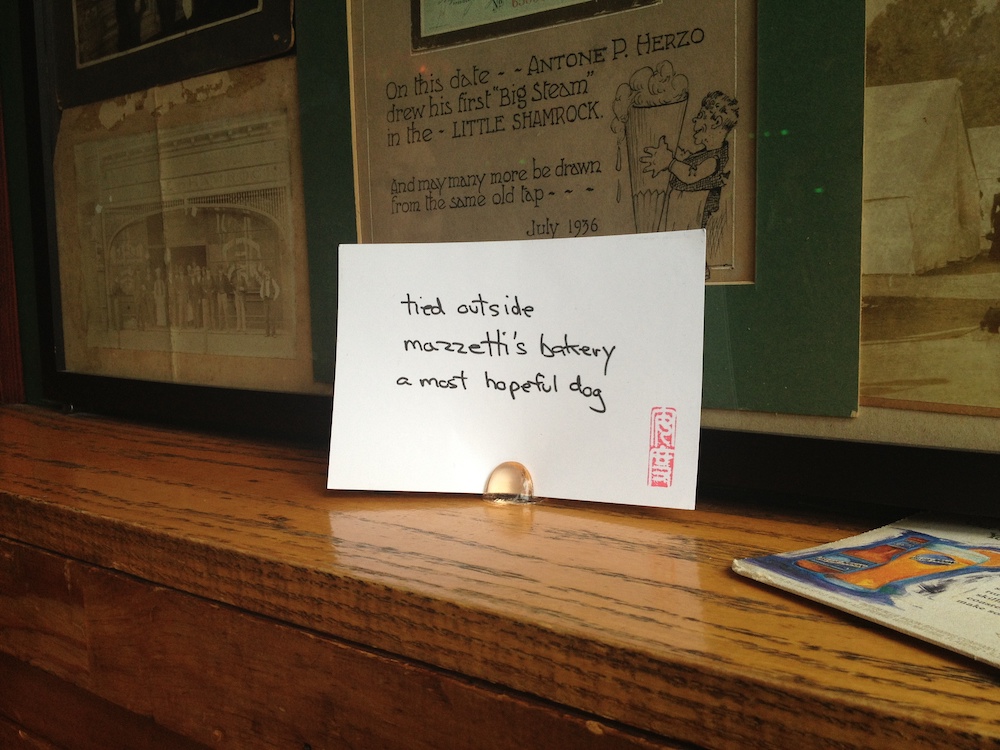 On this date - - ANTONE P. HERZO
drew his first "Big Steam"
in the - LITTLE SHAMROCK.
And may many more be drawn
from the same old tap - - -
July 1936
tied outside
mazzetti's bakery
a most hopeful dog